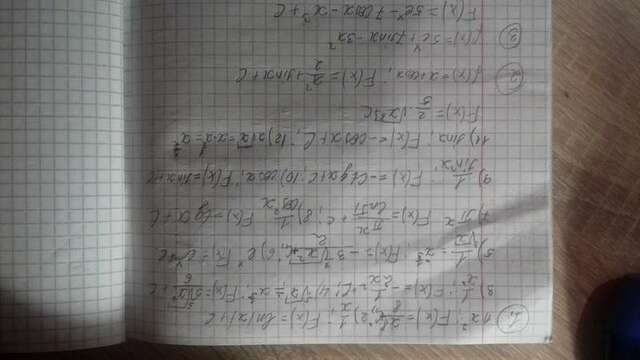 1. 1) x⁷; F(x) = x⁸/8 + C; 2) 1/x; F(x) = ln(x) + C
3) 1/x³; F(x) = -1/2x² + C; 4) = x; F(x) = + C
5) F(x) = + C; 6) eˣ F(x) = eˣ + C
7) πˣ F(x) = πˣ/lnπ + C; 8) 1/cos²x F(x) = tg x + C
9) 1/sin²x; F(x) = -ctg x + C 10) cosx; F(x) = sinx + C
11) sinx; F(x) = -cosx + C; 12) x√x = x·x = x
F(x) = 2/5 · √x⁵ + C
2 f(x) = x + cosx; F(x) = x²/2 + sinx + C
3 f(x) = 5eˣ + 7sinx - 3x²
F(x) = 5eˣ - 7cosx - x³ + C